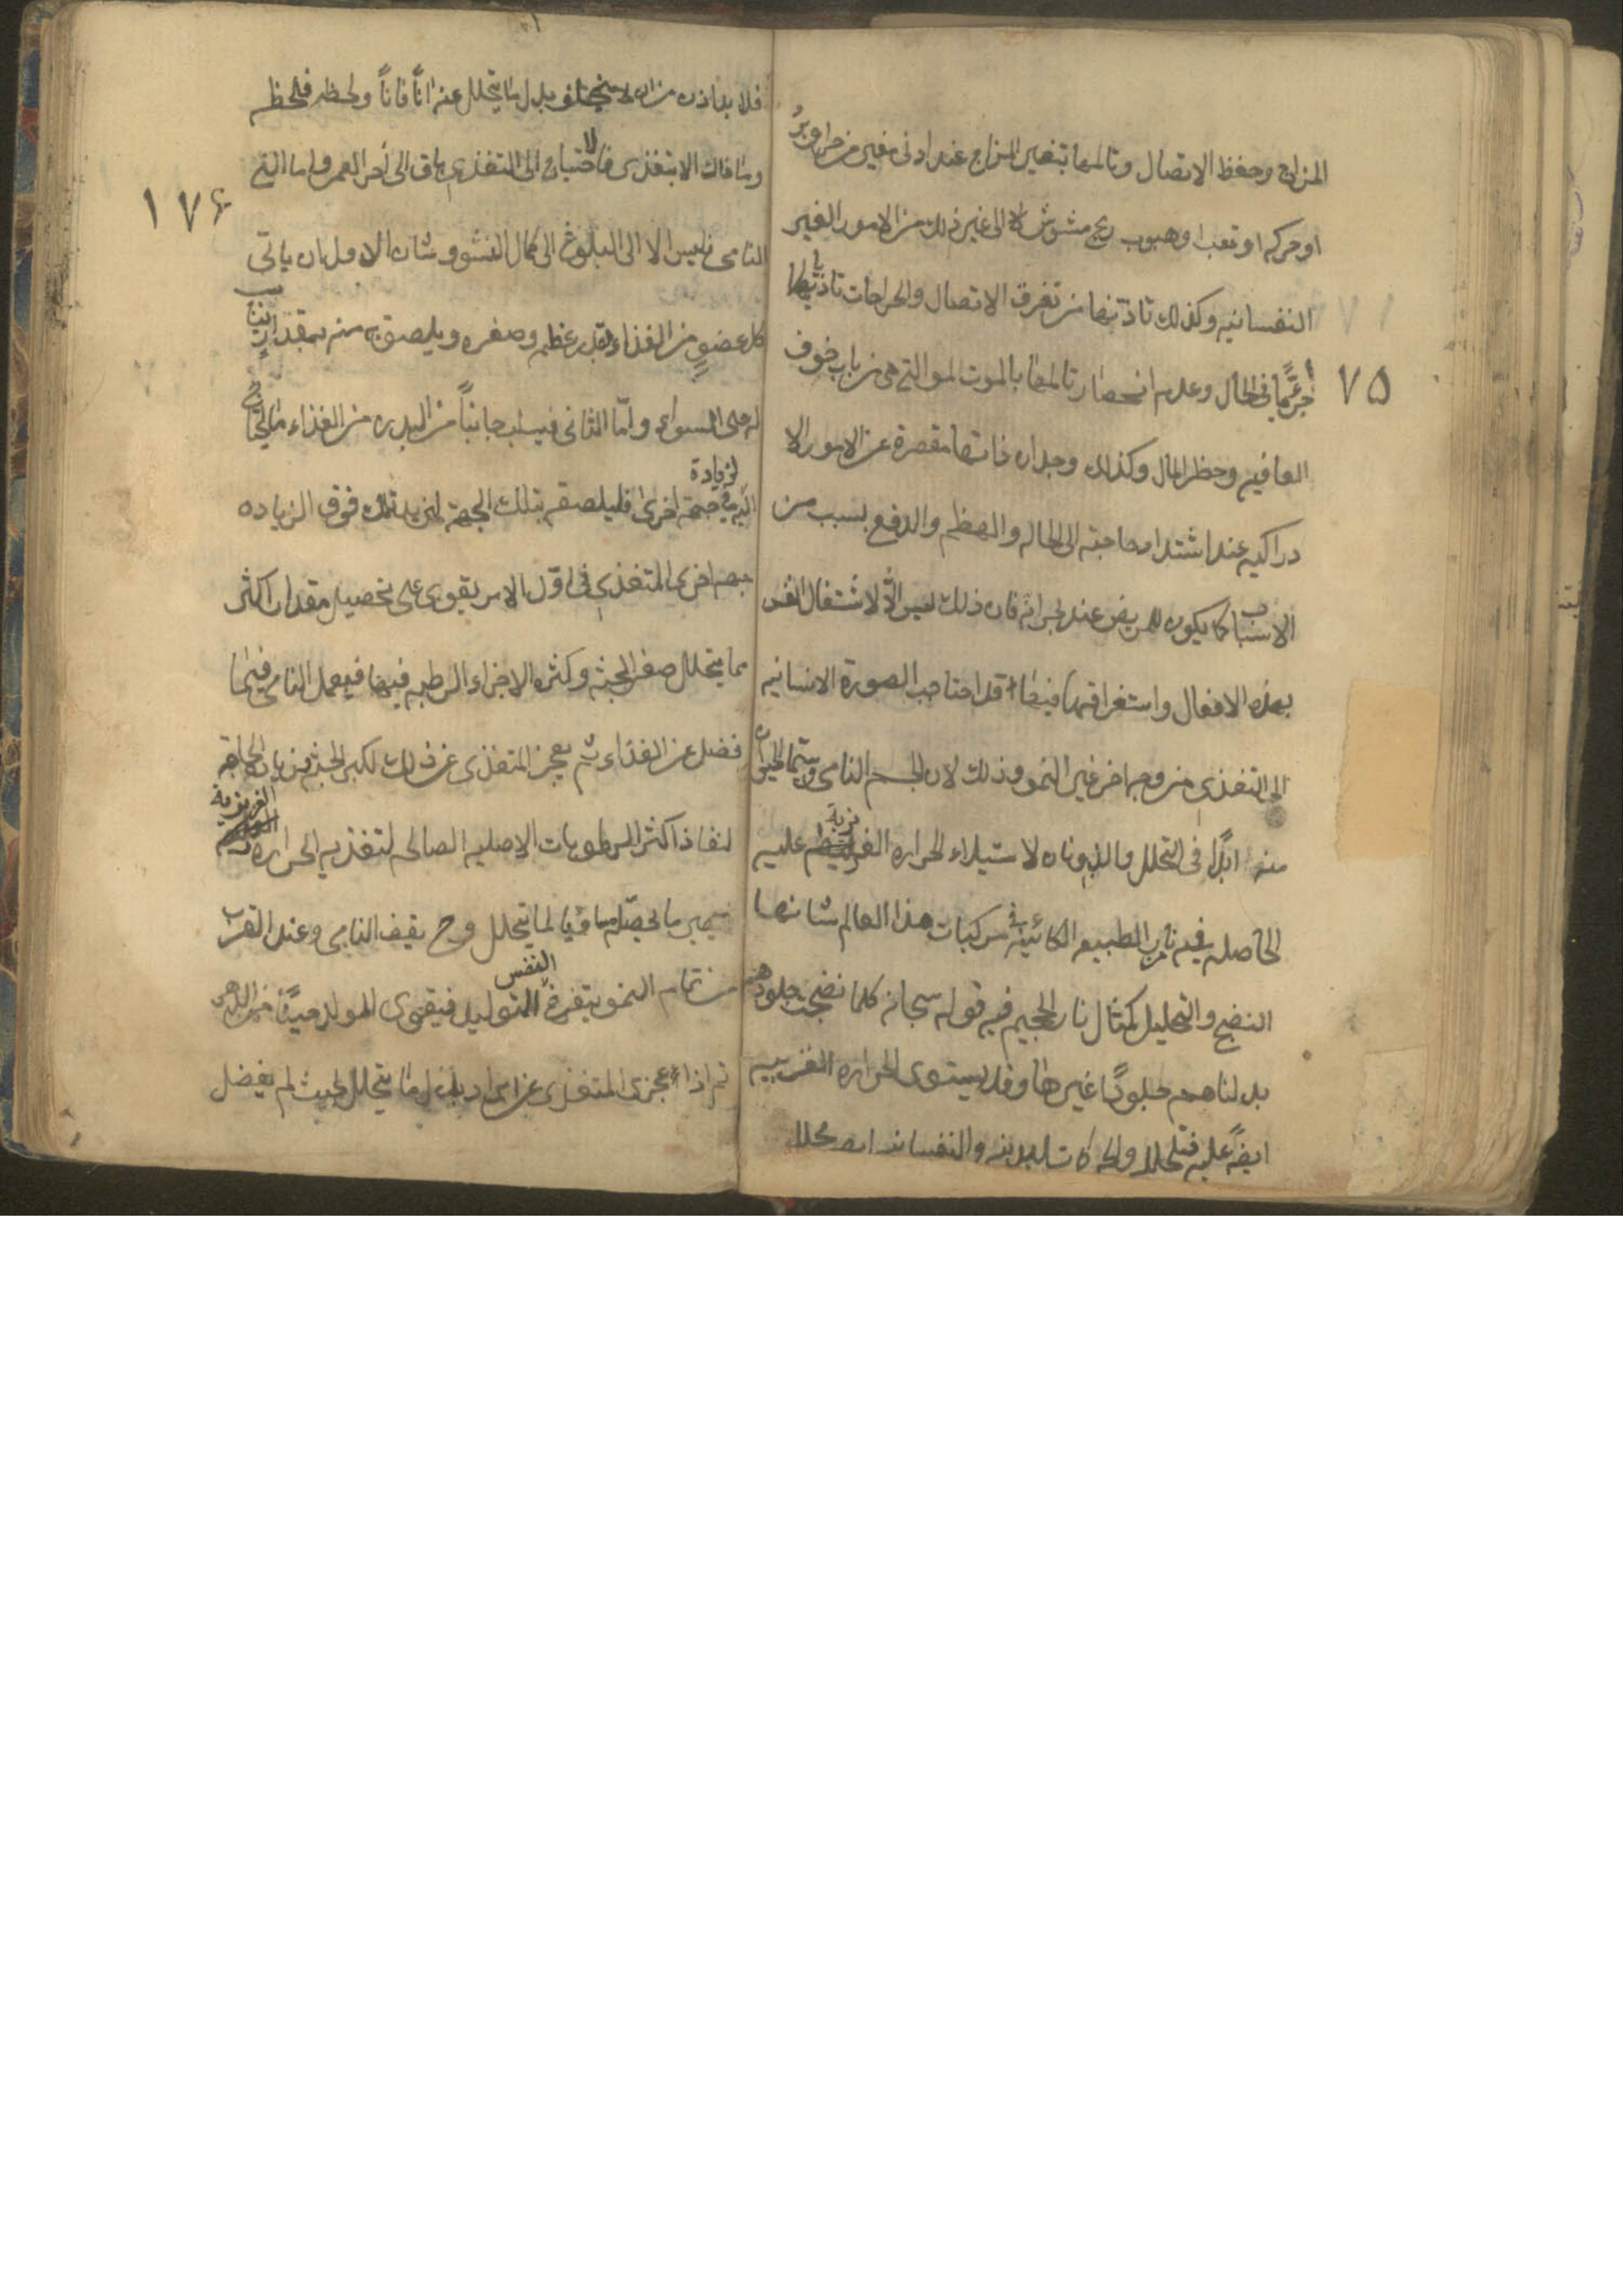 المزاج وحفظ الاتصال وتالمها بتغير المزاج عند ادنى مغير من حر او برد
او حركه او تعب او هبوب ريح مشوش الى غير ذلك من الامور الغير
النفسانيه وكذلك تاذيها من تفرق الاتصال والجراحات تاذيا
٧٥
في الحال وعدم انحصار تالمها بالموت التي هي من باب خوف
العاقبه وحظر المال وكذلك وجدان ذاتها مقصرة عن الامور الا
دراكيه عند اشتداد حاجته الى الحاله والهظم والدفع بسبب من
الاسباب كما يكون للمريض عند بحرانه فان ذلك ليس الا لاشتغال النفس
بهذه الافعال واستغراقها فيها قد احتاجت الصورة الانسانيه
الى التغذي من وجه اخر غير النمو وذلك لان الجسم النامي وسيما الحيوان
منه ابدا في التحلل والذوبان لاستيلاء الحراره الغريزية عليه
الحاصله فيه نار الطبيعه الكائنة في مركبات هذا العالم شانها
النضج والتحليل كمثال نار الجحيم فيه قوله سبحانه كلما نضجت جلودهم
بدلناهم جلودا غيرها وقد يستوى الحراره الغريبيه
ايضا عليه فتحلل والحركات البدنيه والنفسانيه ايضا محلله
فلا بد اذن من ان يتخلف بدل ما يتحلل عنه انا فانا ولحظه فلحظه
وما ذاك الا بتغذي فالاحتياج الى التغذي باق الى أخر العمر واما الى
١٧٦
النامي فليس الا الى البلوغ الى كمال النشو وشان الاول ان ياتي
كل عضو من الغذاء بقدر عظمه وصغره ويلصق به منه بمقدار يناسب
له على السواء واما الثاني فيسلب جانبا من البدن من الغذاء ما يحتاج
اليه في جهة اخرى فيلصقه بتلك الجهة لزيادة تلك فوق الزياده
جهه اخرى المتغذي في اول الامر يقوى على تحصيل مقدار اكثر
مما يتحلل صغر الجثه وكثره الاجزاء الرطبه فيها فيعمل النامي فيما
فضل عن الغذاء ثم يعجز المتغذي عن ذلك لكبر الجثه وزياده الحاجه
لنفاذ اكثر الرطوبات الاصليه الصالحه لتغذيه الحراره الغريزية
فيصير ما يحصله مساويا لما يتحلل وح يقف النامي وعند القرب
من تمام النمو يتفرغ النفس للتوليد فيقوى المولد حينا من الدهر
ثم اذا عجزت المتغذي عن ايراد بدل ما يتحلل بحيث لم يفضل